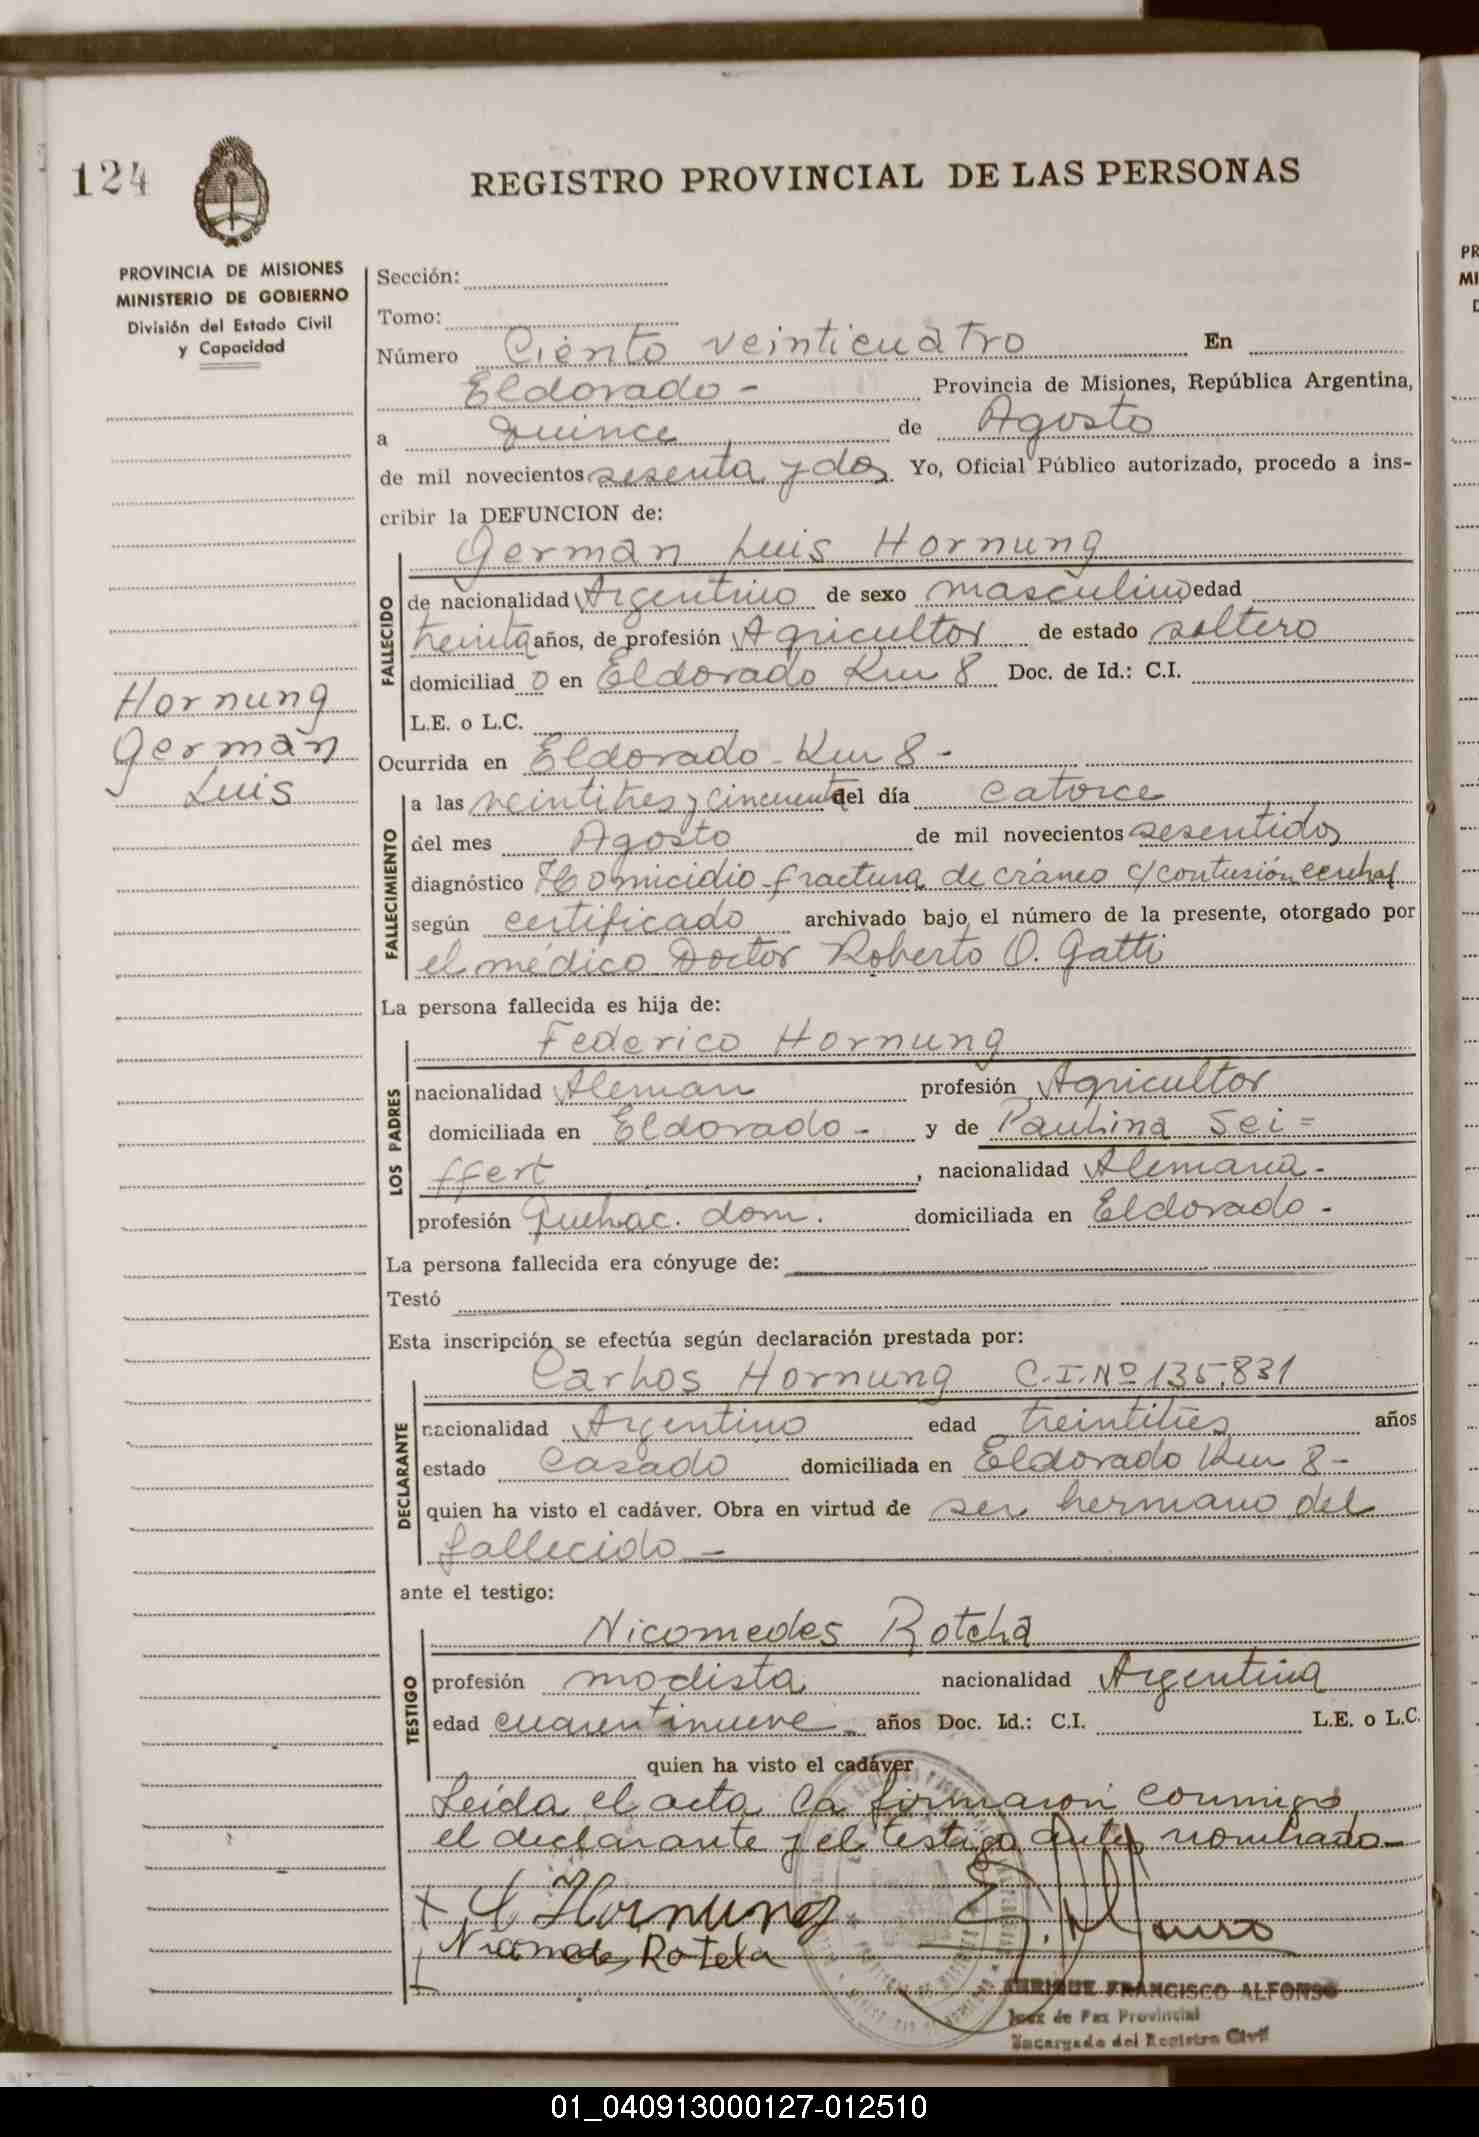 124
REGISTRO PROVINCIAL DE LAS PERSONAS
PROVINCIA DE MISIONES
MINISTERIO DE GOBIERNO
División del Estado Civil
y Capacidad
Hornung
Germán
Luis
Sección:
Tomo:
Número Ciento veinticuatro En
Eldorado - Provincia de Misiones, República Argentina,
a Quince de Agosto
de mil novecientos sesenta y dos Yo, Oficial Público autorizado, procedo a ins-
cribir la DEFUNCION de:
FALLECIDO
Germán Luis Hornung
de nacionalidad Argentino de sexo masculino edad
treinta años, de profesión Agricultor de estado soltero
domiciliad o en Eldorado Km 8 Doc. de Id.: C.I.
L.E. o L.C.
Ocurrida en Eldorado - Km 8 -
FALLECIMIENTO
a las veintitres y cincuenta del día catorce
del mes Agosto de mil novecientos sesentidos
diagnóstico Homicidio - fractura de cráneo c/contusión cerebral
según certificado archivado bajo el número de la presente, otorgado por
el médico Doctor Roberto O. Gatti
La persona fallecida es hija de:
LOS PADRES
Federico Hornung
nacionalidad Aleman profesión Agricultor
domiciliada en Eldorado - y de Paulina Sei=
ffert, nacionalidad Alemana -
profesión Quehac. dom. domiciliada en Eldorado -
La persona fallecida era cónyuge de:
Testó
Esta inscripción se efectúa según declaración prestada por:
DECLARANTE
Carlos Hornung C.I. Nº 135.831
nacionalidad Argentino edad treintitres años
estado Casado domiciliada en Eldorado Km 8 -
quien ha visto el cadáver. Obra en virtud de ser hermano del
fallecido -
ante el testigo:
TESTIGO
Nicomedes Rotela
profesión modista nacionalidad Argentina
edad cuarentinueve años Doc. Id.: C.I. L.E. o L.C.
quien ha visto el cadáver
Leída el acta la firmaron conmigo
el declarante y el testigo antes nombrado -
+ C Hornung
Nicomedes Rotela
ENRIQUE FRANCISCO ALFONSO
Juez de Paz Provincial
Encargado del Registro Civil
01_040913000127-012510